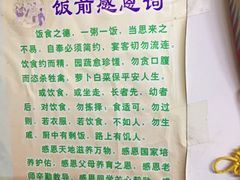 饭前感恩词
饮食之德，一粥一饭，当思来之
不易。自奉必须简约，宴客切勿流连
饮食约而精，园蔬愈珍馐。勿贪口腹
而恣杀牲禽，萝卜白菜保平安人生。
或饮食，或坐走，长者先，幼者
后。对饮食，勿拣择，食适可，勿过
则。若衣服，若饮食，不如人，勿生
戚。厨中有剩饭，路上有饥人。
感恩天地滋养万物，感恩国家培
养护佑，感恩父母养育之恩，感恩老
师辛勤教导，感恩同学关心帮助